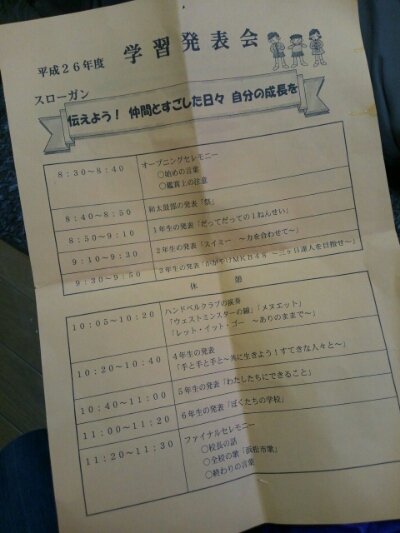 平成26年度 学習発表会
スローガン
伝えよう! 仲間とすごした日々 自分の成長を
8:30~8:40 オープニングセレモニー
○始めの言葉
○鑑賞上の注意
8:40~8:50 和太鼓部の発表「祭」
8:50~9:10 1年生の発表「だってだっての1ねんせい」
9:10~9:30 2年生の発表「スイミー ~力を合わせて~」
9:30~9:50 年生の発表
休憩
10:05~10:20 ハンドベルクラブの演奏
「ウェストミンスターの鐘」「メヌエット」
「レット・イット・ゴー ~ありのままで~」
10:20~10:40 4年生の発表
「手と手と手と~共に生きよう!すてきな人々と~」
10:40~11:00 5年生の発表「わたしたちにできること」
11:00~11:20 6年生の発表「ぼくたちの学校」
11:20~11:30 ファイナルセレモニー
○校長の話
○全校の歌「浜松市歌」
○終わりの言葉